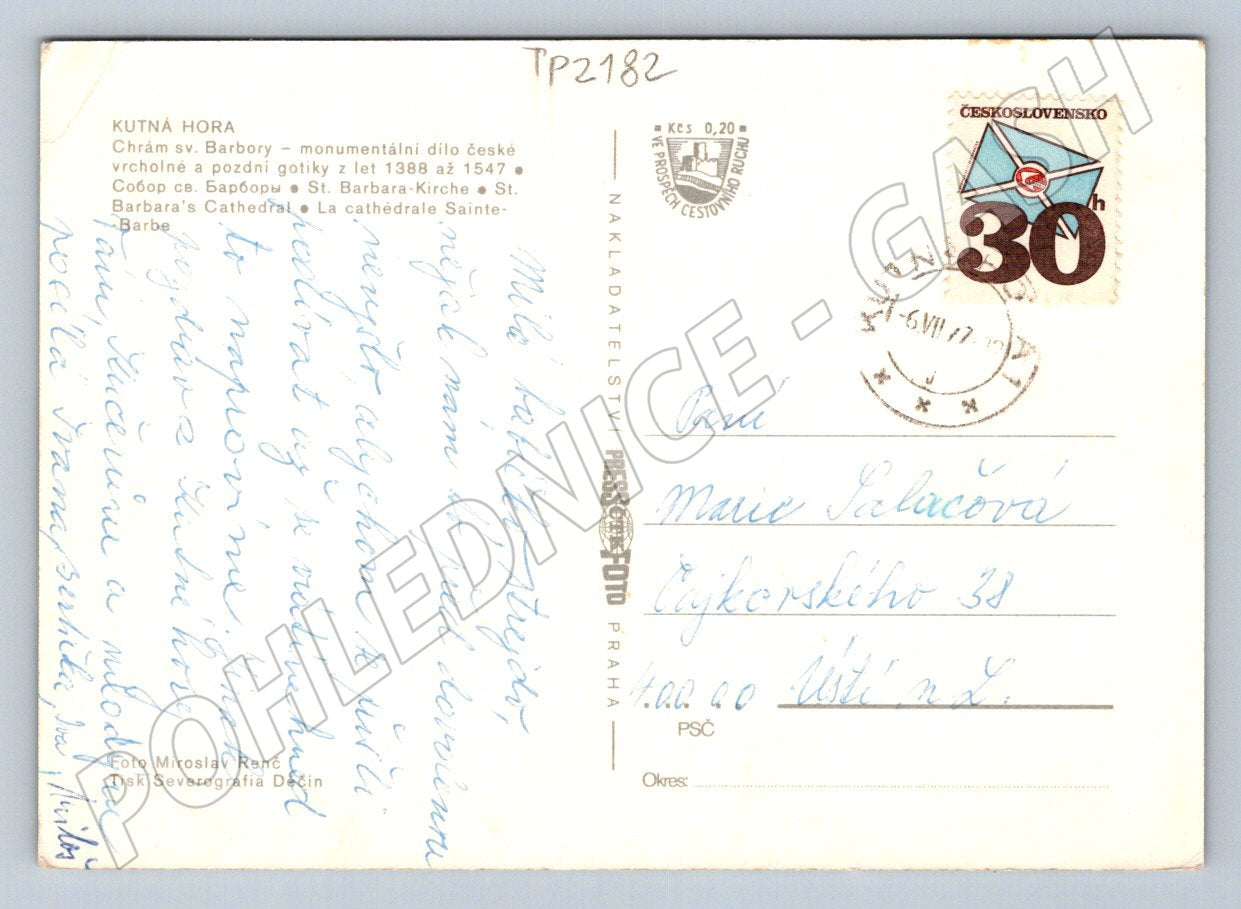 TP2182
KUTNÁ HORA
Chrám sv. Barbory – monumentální dílo české
vrcholné a pozdní gotiky z let 1388 až 1547 •
Собор св. Барборы • St. Barbara-Kirche • St.
Barbara's Cathedral • La cathédrale Sainte-
-Barbe
Milá babi, strejdo,
nějak nám
nevyšlo, abychom se přišli
podívat až se vrátí
to napravíme.
pozdrav z Kutné hory
a
posílá Ivana, Zdeňka, Iva, Miloš
Foto Miroslav Renč
Tisk Severografia Děčín
NAKLADATELSTVÍ PRESSFOTO PRAHA
Kčs 0,20
VE PROSPĚCH CESTOVNÍHO RUCHU
ČESKOSLOVENSKO
30h
-6.VII.77
Paní
Marie Salačová
Čajkovského 38
400 00 Ústí n L.
PSČ
Okres:
POHLEDNICE - GASH